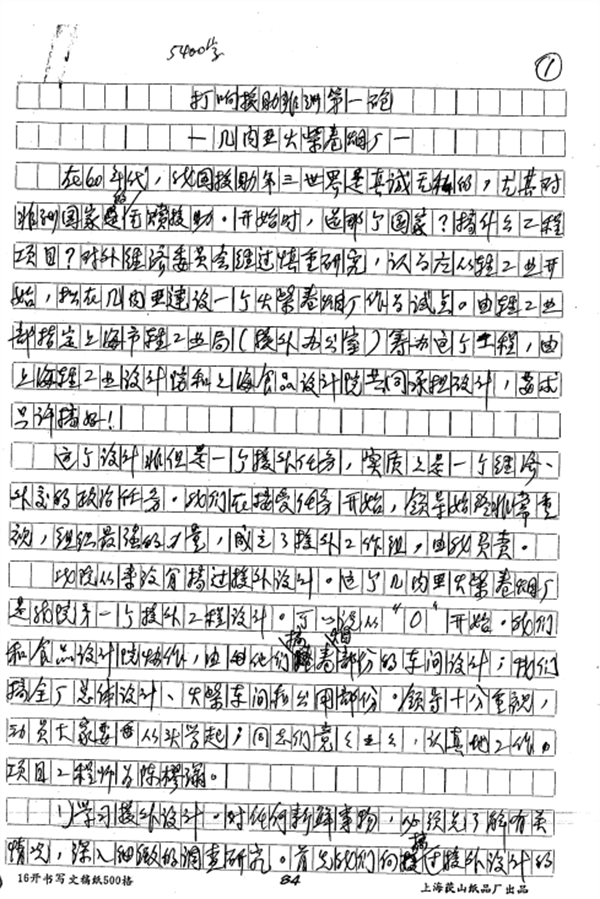 5400字
①
打响援助非洲第一砲
—几内亚火柴卷烟厂—
在60年代，我国援助第三世界是真诚无私的，尤其对
非洲国家的无偿援助。开始时，选那个国家？搞什么工程
项目？对外经济委员会经过慎重研究，认为应从轻工业开
始，拟在几内亚建设一个火柴卷烟厂作为试点。由轻工业
部指定上海市轻工业局（援外办公室）筹办这个工程，由
上海轻工业设计院和上海食品设计院共同承担设计，要求
只许搞好！
这个设计非但是一个援外任务，实质上是一个经济、
外交的政治任务。我们在接受任务开始，领导始终非常重
视，组织最强的力量，成立了援外工作组，由我负责。
我院从来没有搞过援外设计。这个几内亚火柴卷烟厂
是我院第一个援外工程设计。可以说从“0”开始。我们
和食品设计院协作，由他们搞卷烟部份的车间设计；我们
搞全厂总体设计、火柴车间和公用部份。领导十分重视，
动员大家要从头学起；同志们兢兢业业，认真地工作。
项目工程师为陈
1）学习援外设计。对任何新鲜事物，必须先了解有关
情况，深入细致的调查研究。首先我们向搞过援外设计的
16开书写文稿纸500格
84
上海茂山纸品厂出品